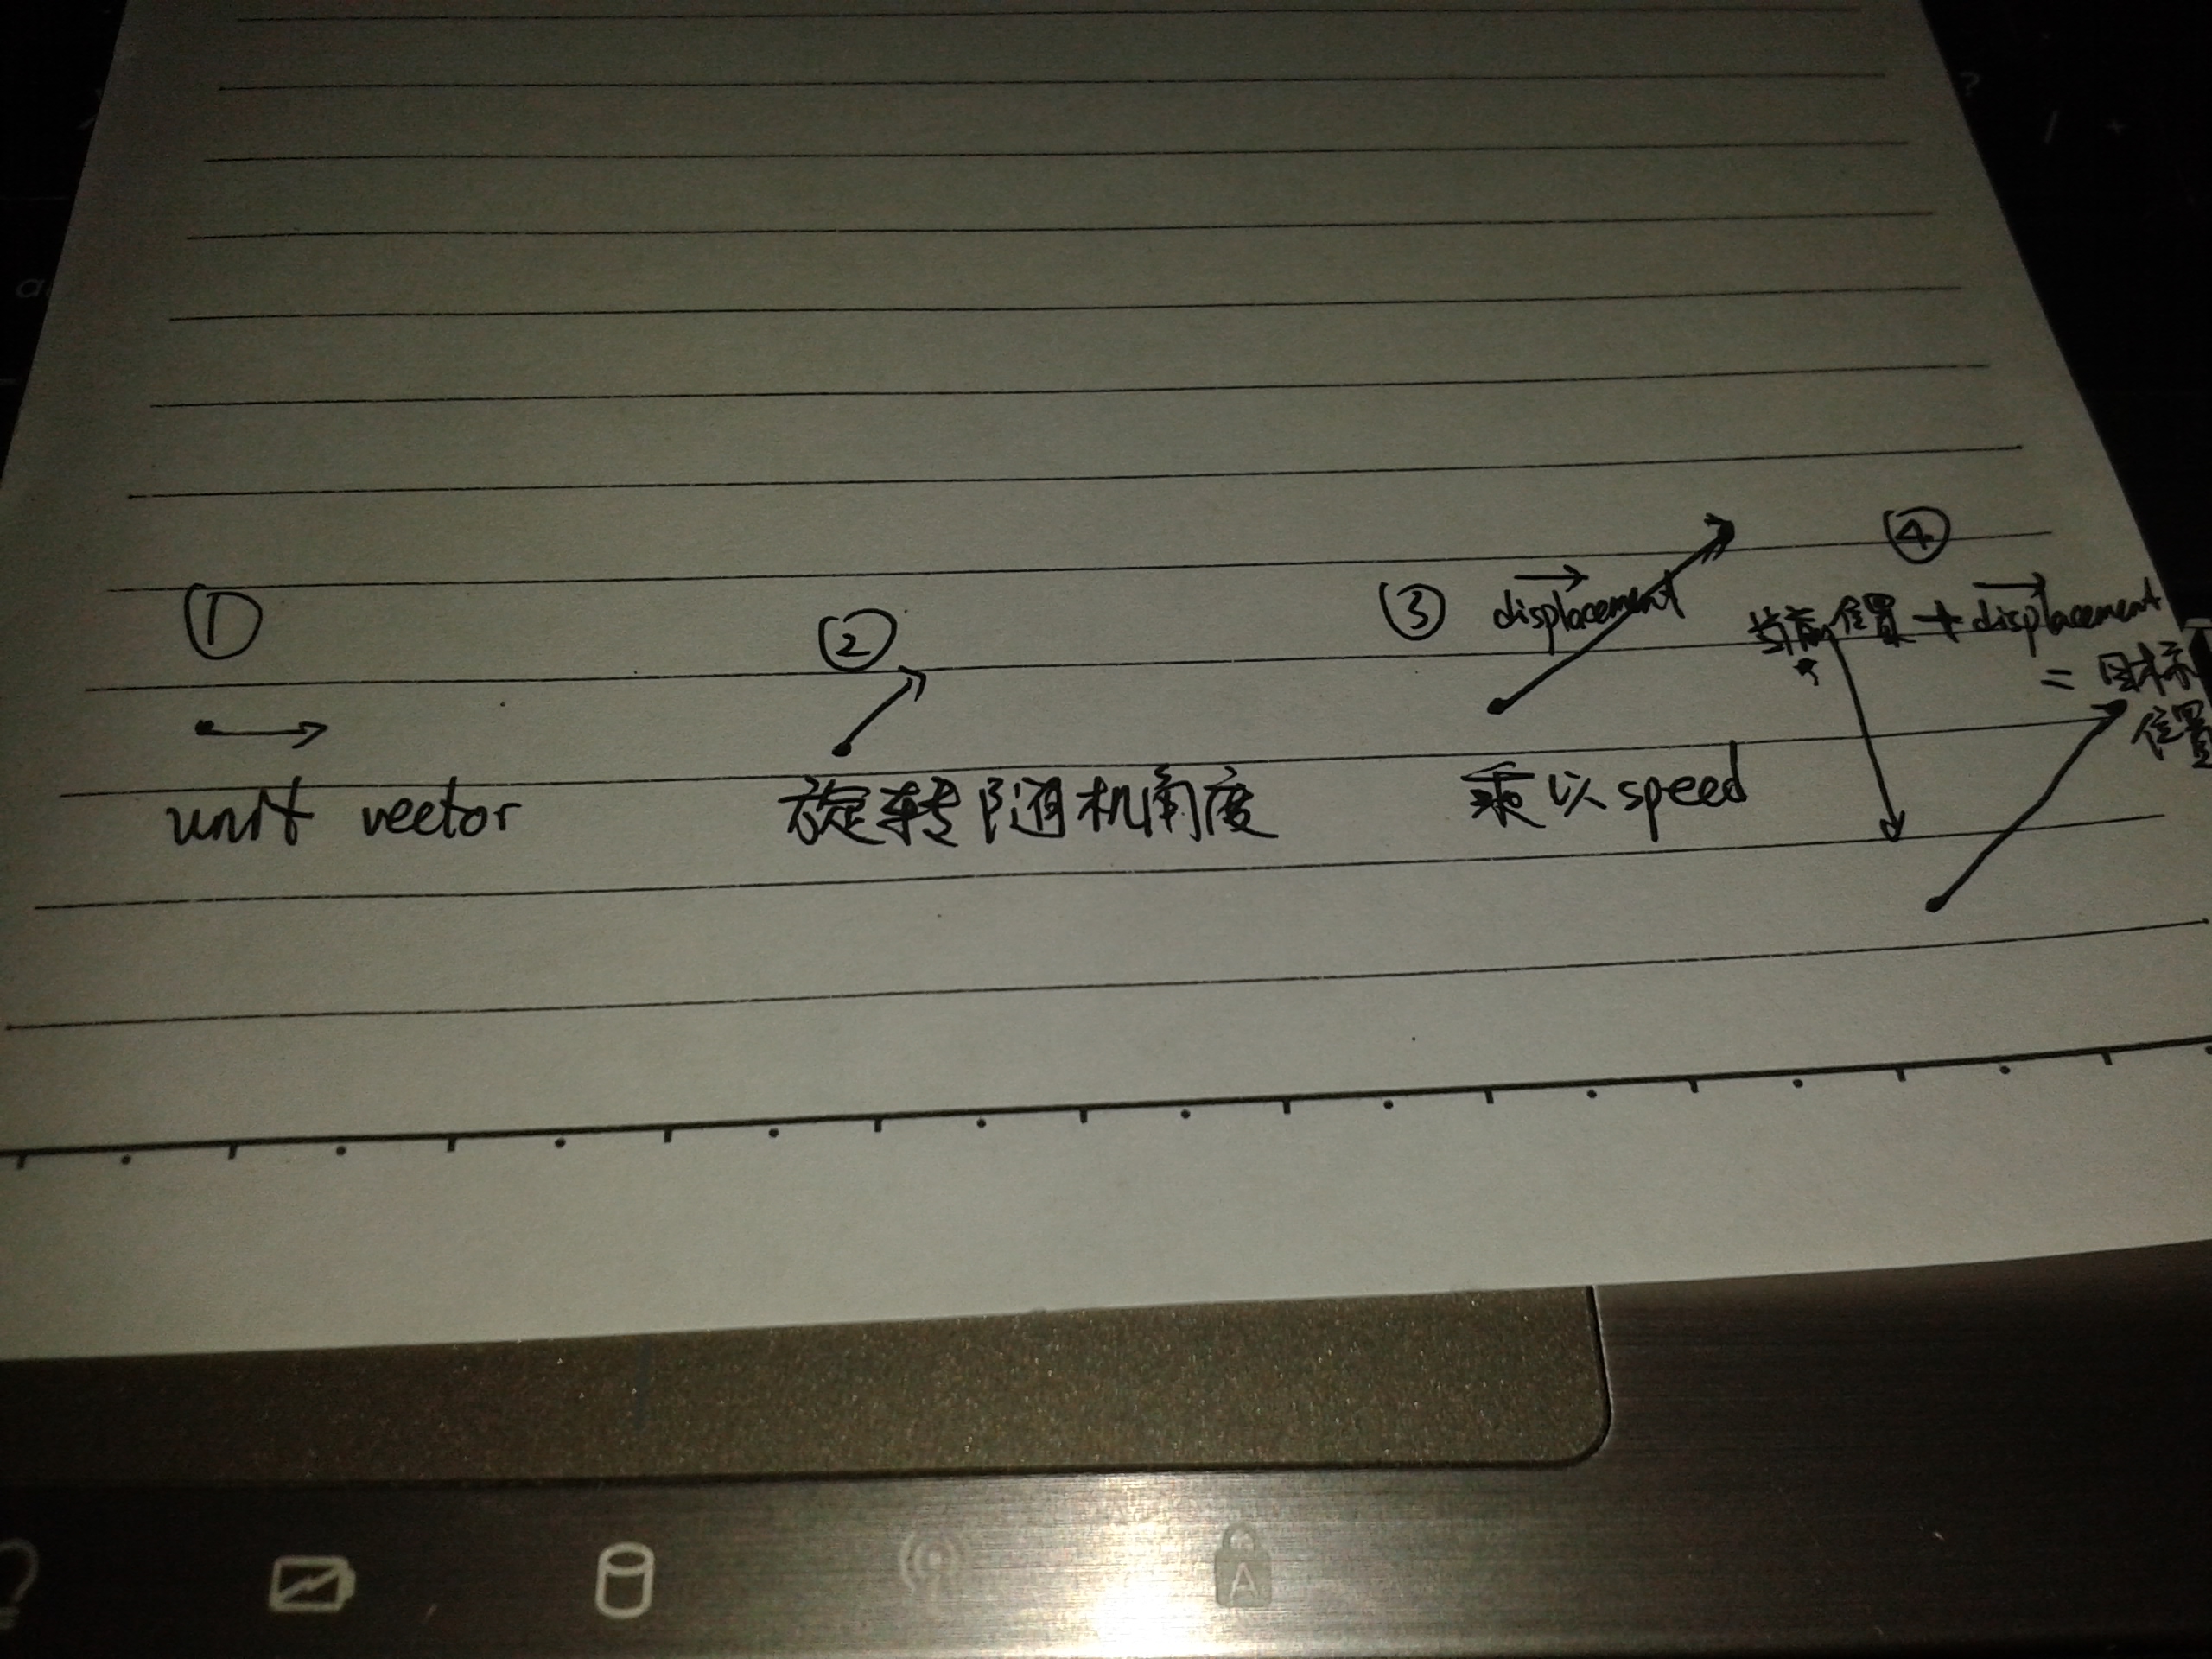 ①
unit vector
②
旋转随机角度
③ displacement
乘以speed
④
当前位置 + displacement
= 目标
位置
A